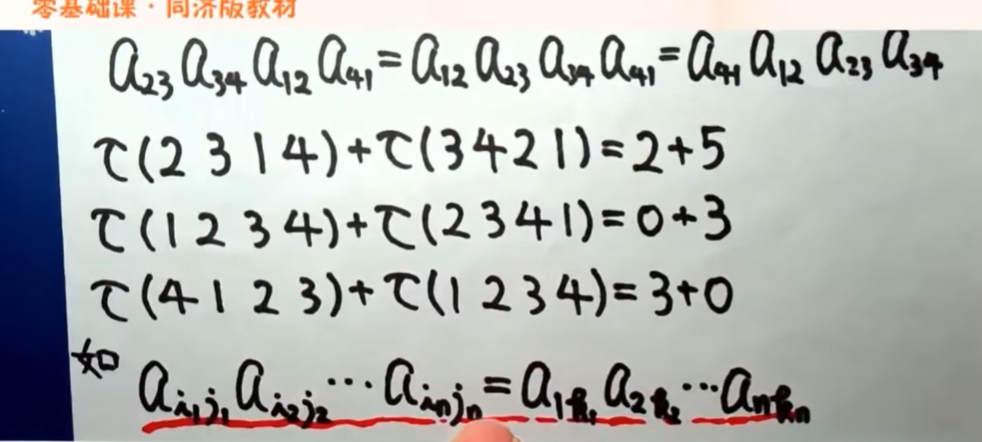 零基础课·同济版教材
a₂₃ a₃₄ a₁₂ a₄₁ = a₁₂ a₂₃ a₃₄ a₄₁ = a₄₁ a₁₂ a₂₃ a₃₄
τ(2 3 1 4)+τ(3 4 2 1)=2+5
τ(1 2 3 4)+τ(2 3 4 1)=0+3
τ(4 1 2 3)+τ(1 2 3 4)=3+0
如 a_{i₁j₁} a_{i₂j₂} ⋯ a_{iₙjₙ} = a_{1k₁} a_{2k₂} ⋯ a_{nkₙ}